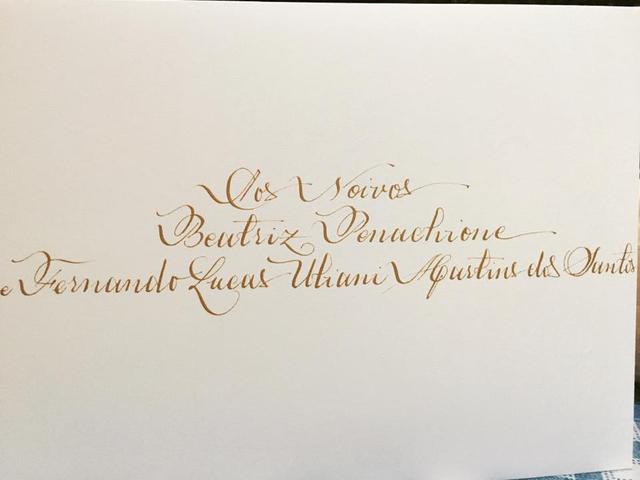 Aos Noivos
Beatriz Penachione
e Fernando Lucas Uliani Martins dos Santos